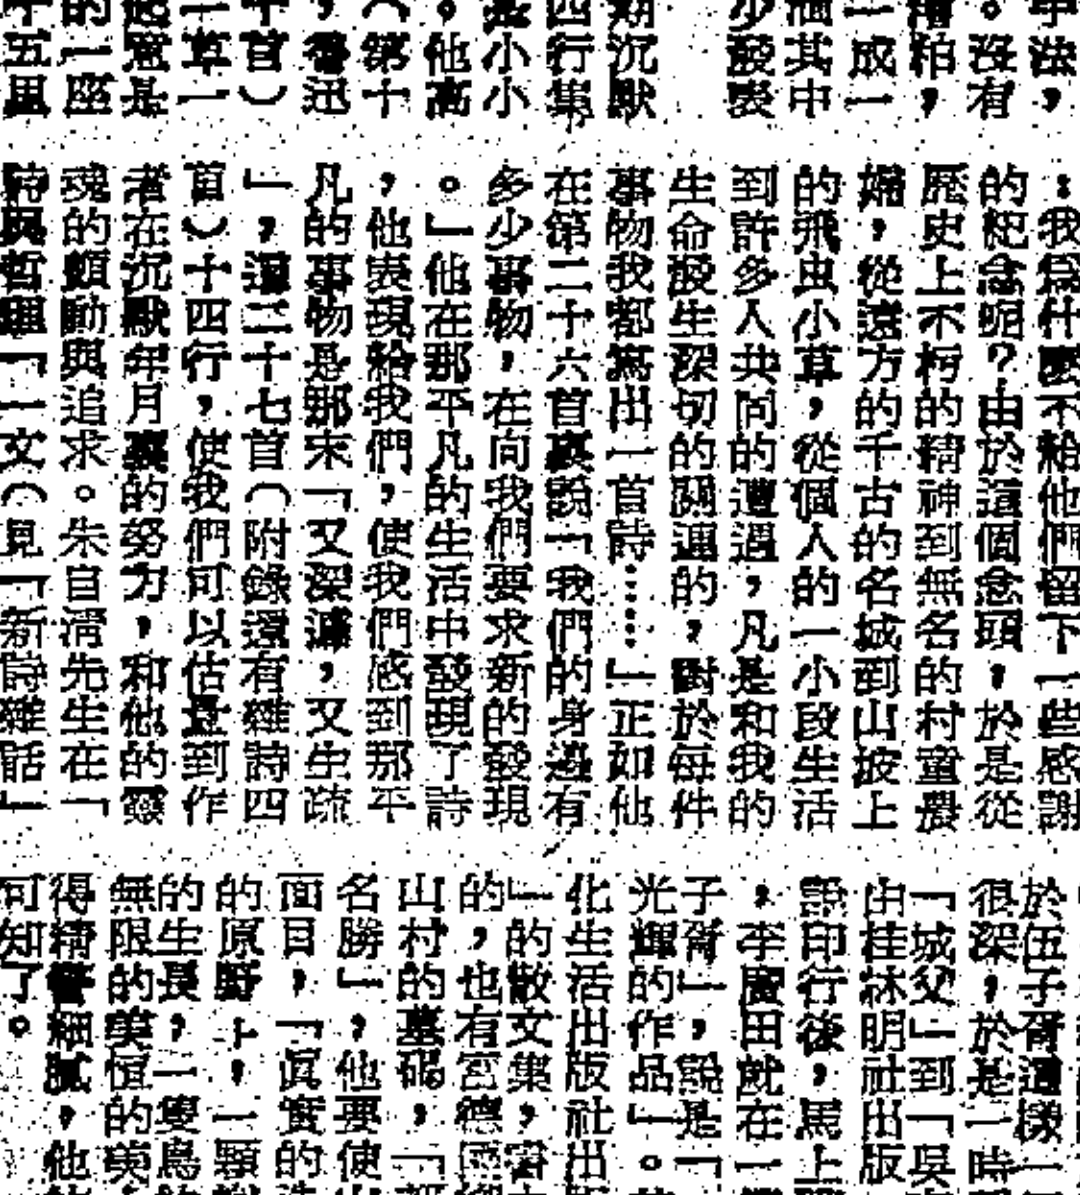 中法，
。沒有
糟粕，
一成一
個其中
少發表
期沉默
四行集
是小小
。他高
（第十
，魯迅
十首）
一草一
起意是
的一座
十五里
：我為什麼不給他們留下一些感謝
的紀念呢？由於這個念頭，於是從
歷史上不朽的精神到無名的村童農
婦，從遠方的千古的名城到山坡上
的飛虫小草，從個人的一小段生活
到許多人共同的遭遇，凡是和我的
生命發生深切的關連的，對於每件
事物我都寫出一首詩……」正如他
在第二十六首裏說「我們的身邊有
多少事物，在向我們要求新的發現
。」他在那平凡的生活中發現了詩
，他表現給我們，使我們感到那平
凡的事物是那末「又深濃，又生疏
」，這二十七首（附錄還有雜詩四
首）十四行，使我們可以估量到作
者在沉默年月裏的努力，和他的靈
魂的顫動與追求。朱自清先生在「
詩與哲理「一文（見「新詩雜話」
於伍子胥這樣一
很深，於是一時
「城父」到「吳
由桂林明社出版
語印行後，馬上
，李廣田就在一
子胥」，說是「
光輝的作品」。
化生活出版社出
」的散文集，
的，也有宮德國
山村的墓碣，「
名勝」，他要使
面目，「眞實的
的原野上，一顆
的生長，一隻鳥
無限的美恆的美
得精警細膩，他
可知了。